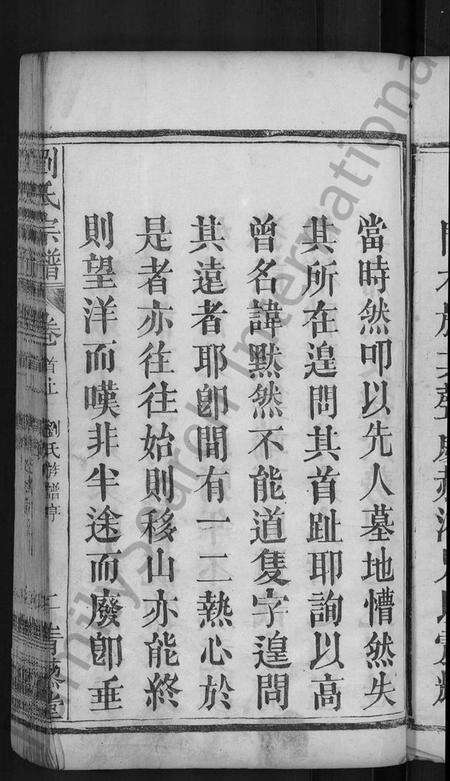 當時然叩以先人墓地懵然失
其所在遑問其首趾耶詢以高
曾名諱默然不能道隻字遑問
其遠者耶即間有一二熱心於
是者亦往往始則移山亦能終
則望洋而嘆非半途而廢即垂
劉氏宗譜 卷首上 劉氏修譜序